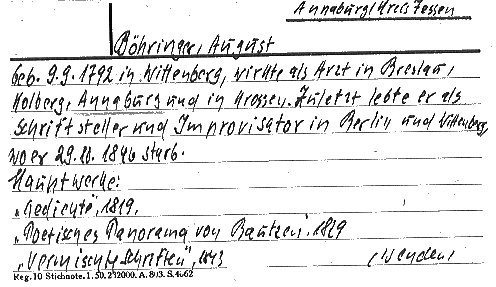 Annaburg/Kreis Jessen
Döhringer, August
geb. 9.9.1792 in Wittenberg, wirkte als Arzt in Breslau,
Kolberg, Annaburg und in Krossen. Zuletzt lebte er als
Schriftsteller und Improvisator in Berlin und Wittenberg,
wo er 29.10. 1846 starb.
Hauptwerke:
"Gedichte", 1819,
"Poetisches Panorama von Bautzen", 1829
"Vermischte Schriften", 1843 (wenden)
Reg. 10 Stichnote. 1. 50. 2000. A. 803. S.